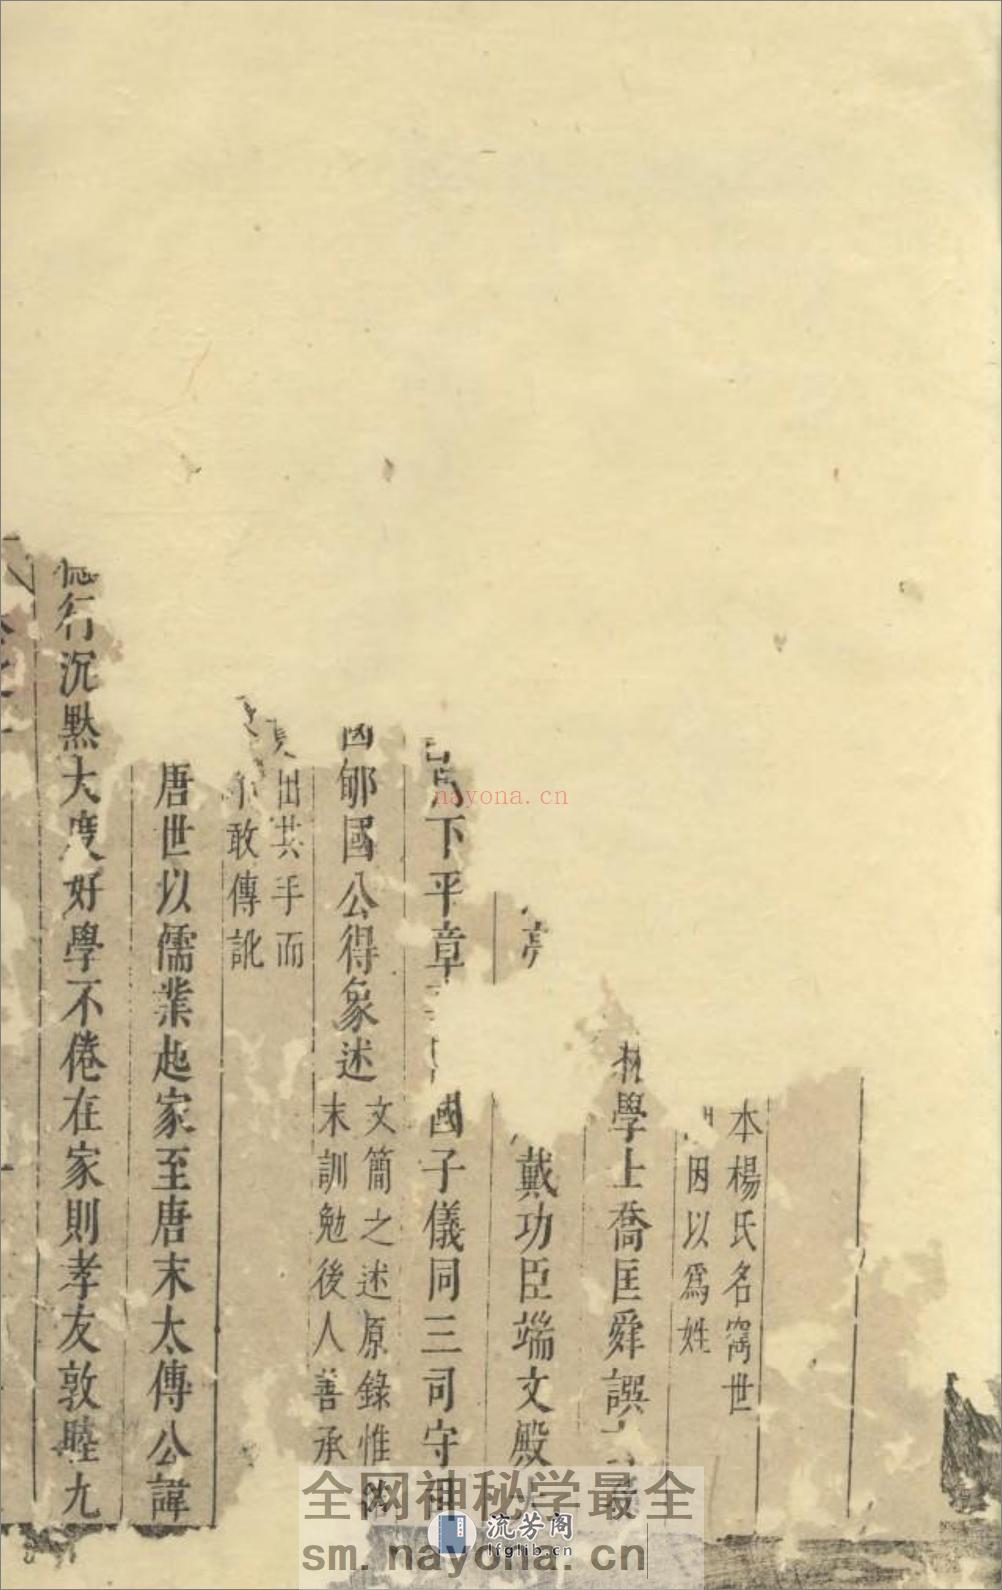 本楊氏名窵世
因以爲姓
學士喬匡舜譔
戴功臣端文殿
下平章
國子儀同三司守
郇國公得象述
文簡之述原錄惟
末訓勉後人善承
出其手而
敢傳訛
唐世以儒業起家至唐末太傅公諱
行沉默大度好學不倦在家則孝友敦睦九
nayona.cn
全网神秘学最全
流芳阁
lfglib.cn
sm.nayona.cn